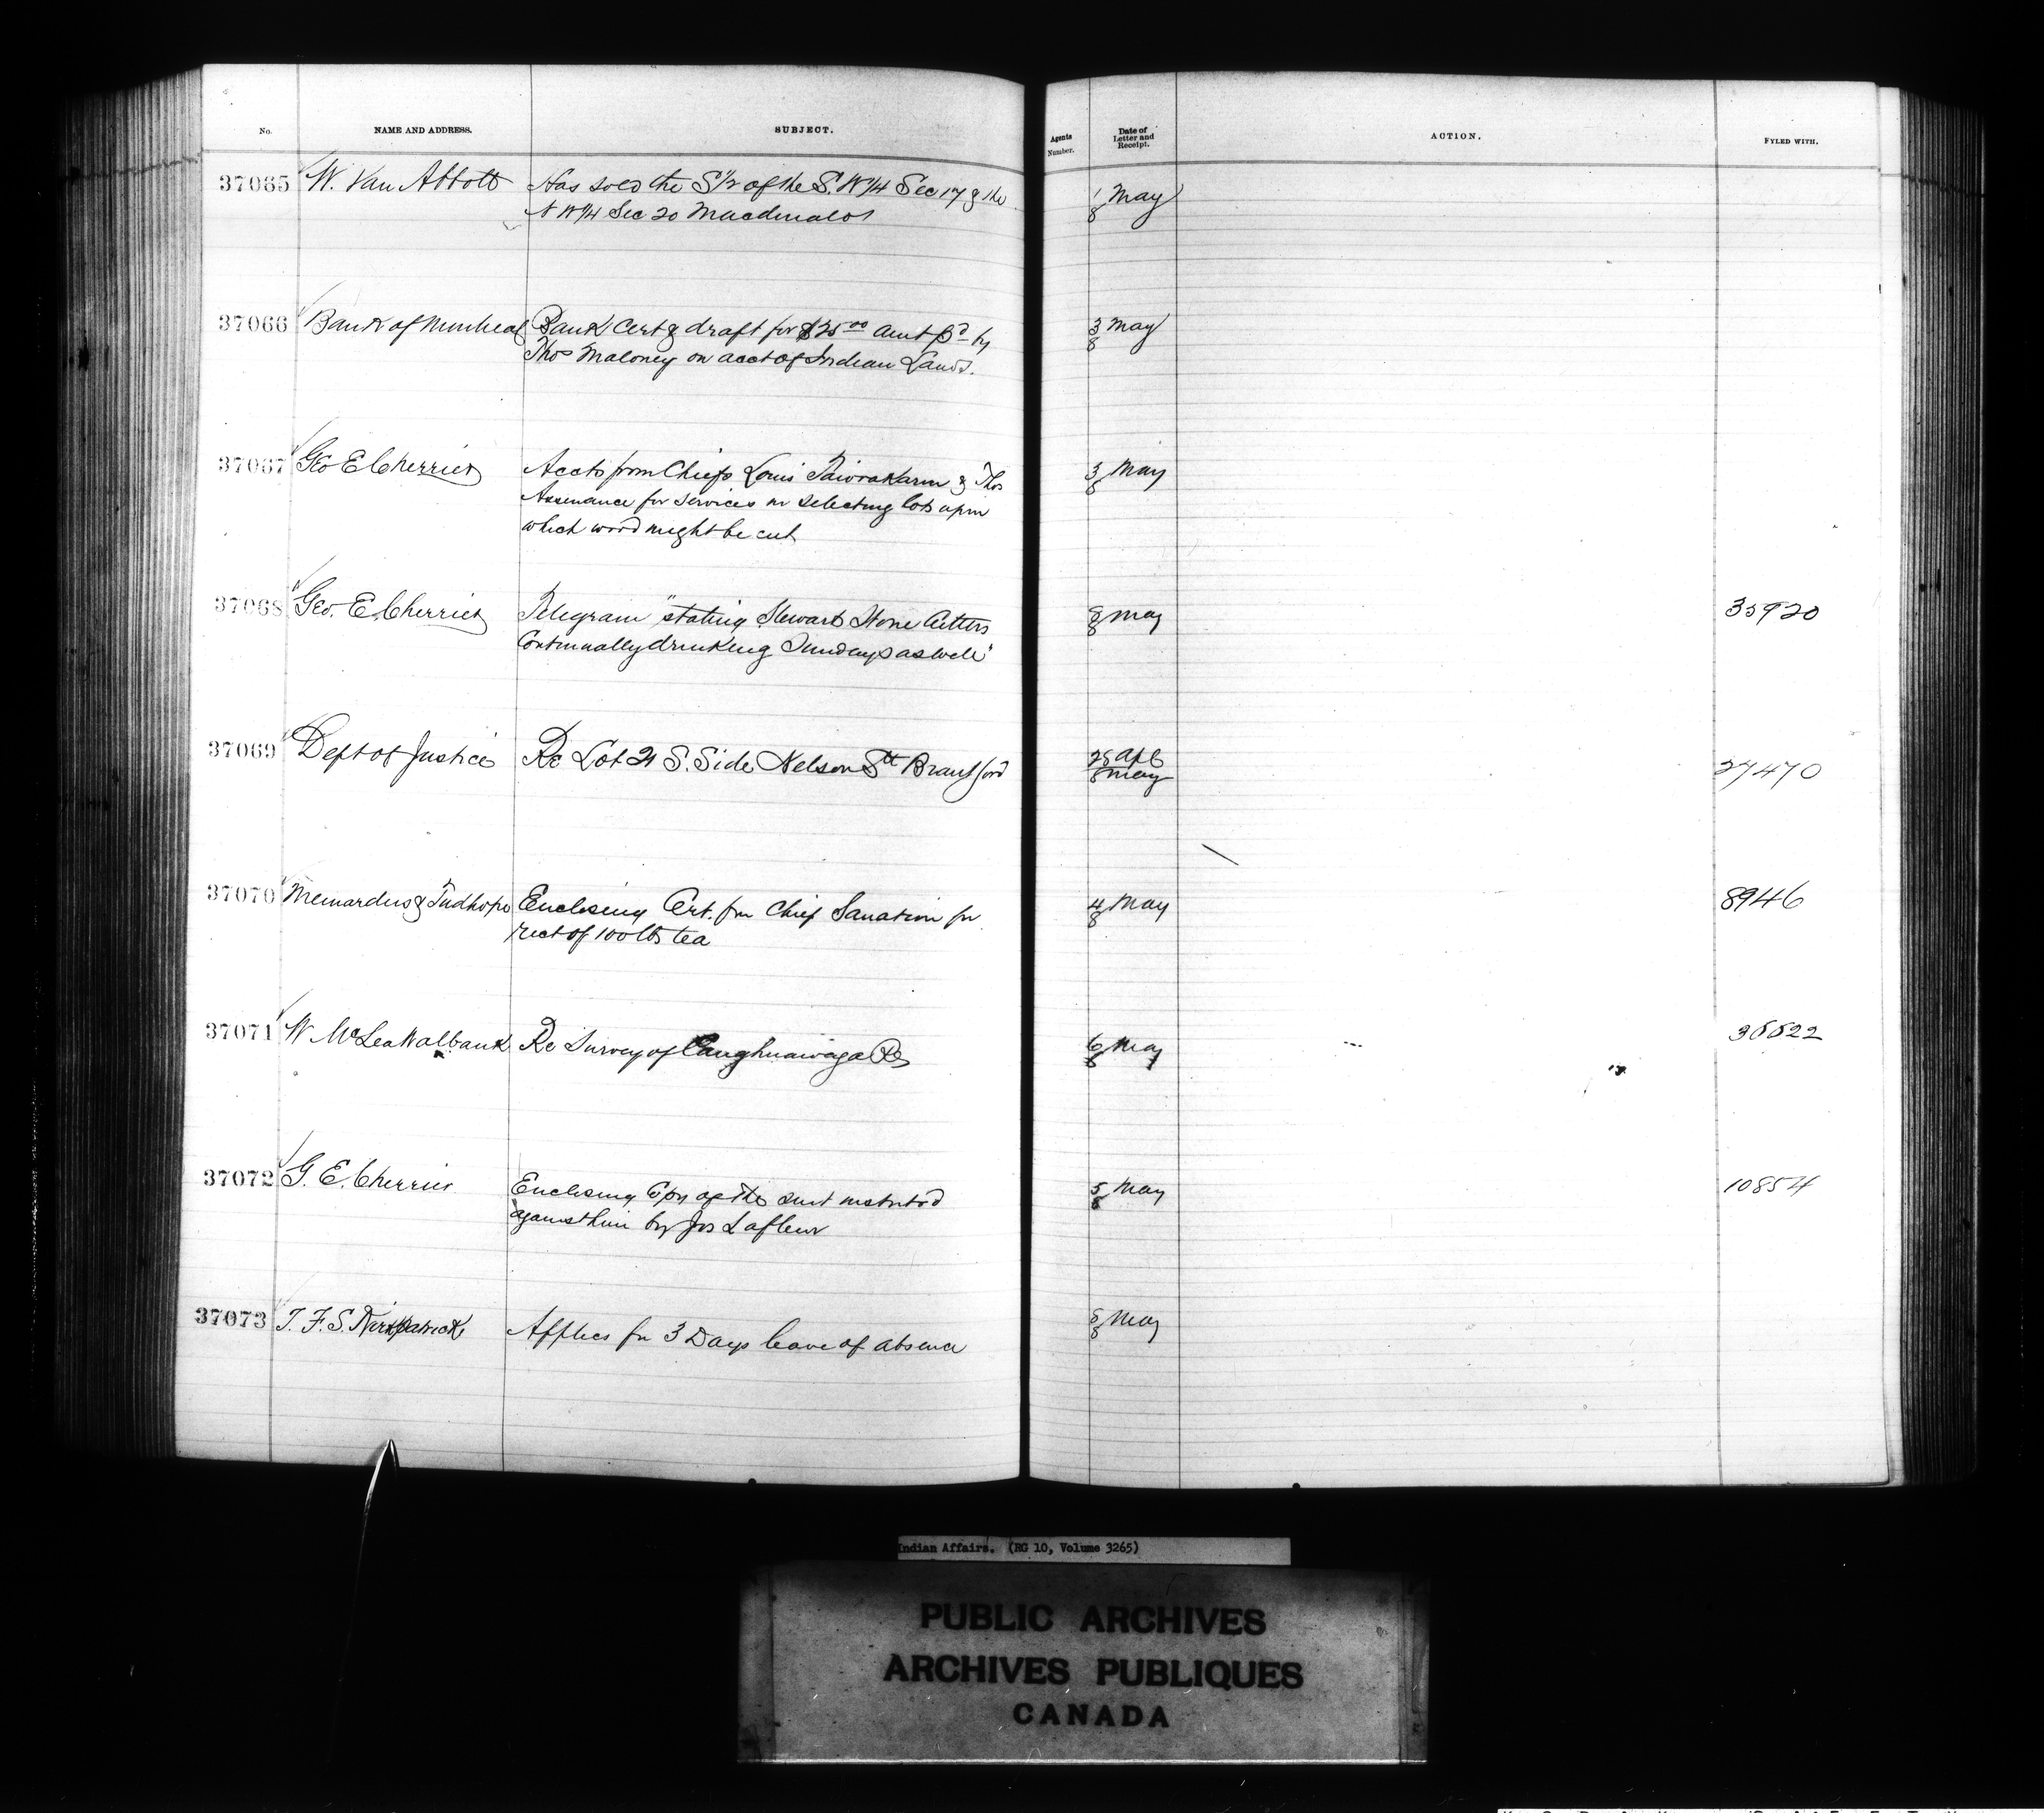 No. NAME AND ADDRESS. SUBJECT. Agents Number. Date of Letter and Receipt. ACTION. FYLED WITH.
37065 W. Van Abbott Has sold the S 1/2 of the S. W 1/4 Sec 17 & the 1/8 May
N W 1/4 Sec 20 Macdonald
37066 Bank of Montreal Bank Cert & draft for $25 00 amt pd by 3/8 May
Thos Maloney on acct of Indian Lands.
37067 Geo E Cherrier Accts from Chiefs Louis & Thos 3/8 May
for services in selecting lots upon
which wood might be cut
37068 Geo. E. Cherrier Telegram "stating Stewart Stone Cutters 8/8 May 35920
Continually drinking Sundays as well"
37069 Dept of Justice Re Lot 21 S. Side Nelson St Brantford 28 Apl / 8 May 27470
37070 & Tudhope Enclosing Cert. fm Chief for 4/8 May 8946
rect of 100 lbs tea
37071 W McLea Walbank Re Survey of Caughnawaga Res 6/8 May
37072 G. E. Cherrier Enclosing Copy of the suit institutd 5/8 May 10854
against him by Jos Lafleur
37073 T. F. S. Kirkpatrick Applies for 3 Days leave of absence 8/8 May
Indian Affairs. (RG 10, Volume 3265)
PUBLIC ARCHIVES
ARCHIVES PUBLIQUES
CANADA